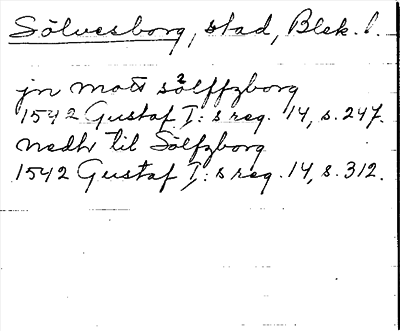 Sölvesborg, stad, Blek. l.
jn mott sölffzborg
1542 Gustaf I:s reg. 14, s. 247.
nedh til Sölfzborg
1542 Gustaf I:s reg. 14, s. 312.